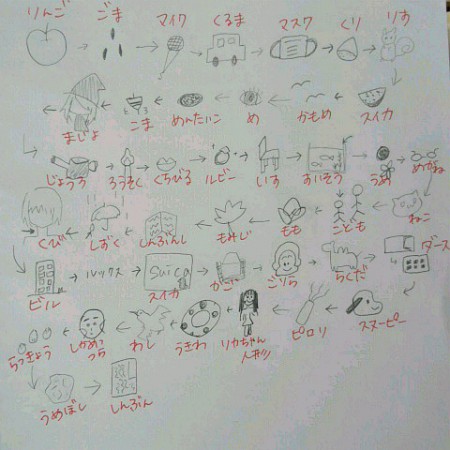 りんご ごま マイク くるま マスク くり りす
まじょ こま めんたいこ め かもめ スイカ
じょうろ ろうそく くちびる ルビー いす すいそう うめ めがね
くび しずく しんぶんし もみじ もも こども ねこ
ビル ルックス Suica スイカ かご ごりら らくだ ダース
らっきょう しかめっつら わし うきわ リカちゃん人形 ピロリ スヌーピー
うめぼし しんぶん